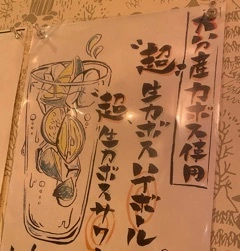 大分産カボス使用
"超"生カボスハイボール
"超"生カボスサワ